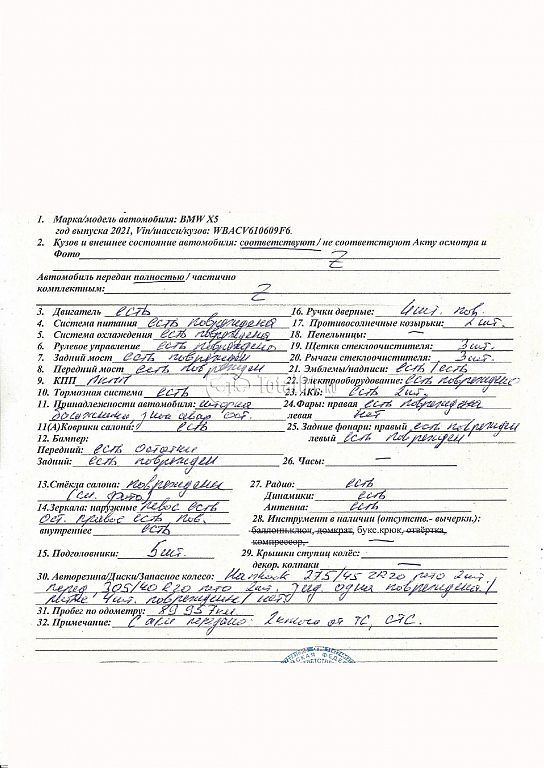 1. Марка/модель автомобиля: BMW X5
год выпуска 2021, Vin/шасси/кузов: WBACV610609F6.
2. Кузов и внешнее состояние автомобиля: соответствуют / не соответствуют Акту осмотра и
Фото Z
Автомобиль передан полностью / частично
комплектным: Z
3. Двигатель есть
4. Система питания есть повреждена
5. Система охлаждения есть повреждена
6. Рулевое управление есть повреждено
7. Задний мост есть поврежден
8. Передний мост есть поврежден
9. КПП
10. Тормозная система есть
11. Принадлежности автомобиля: шторка
багажника, знак авар. ост.
11(А)Коврики салона: есть
12. Бампер:
Передний: есть остатки
Задний: есть поврежден
13.Стёкла салона: повреждены
(см. фото)
14.Зеркала: наружные левое есть
ост. правое есть пов.
внутреннее есть
15. Подголовники: 5 шт.
16. Ручки дверные: 4 шт. пов.
17. Противосолнечные козырьки: 2 шт.
18. Пепельницы: —
19. Щетки стеклоочистителя: 3 шт.
20. Рычаги стеклоочистителя: 3 шт.
21. Эмблемы/надписи: есть / есть
22. Электрооборудование: есть повреждено
23. АКБ: есть 2 шт.
24.Фары: правая есть повреждена
левая нет
25. Задние фонари: правый есть поврежден
левый есть поврежден
26. Часы: —
27. Радио: есть
Динамики: есть
Антенна: есть
28. Инструмент в наличии (отсутств.- вычеркн.):
баллонн.ключ, домкрат, букс.крюк, отвёртка,
компрессор, —
29. Крышки ступиц колёс:
декор. колпаки —
30. Авторезина/Диски/Запасное колесо: Hankook 275/45 ZR20 лето 2 шт.
перед, 305/40 R20 лето 2 шт. зад, одна повреждена /
литые 4 шт. повреждены / нет
31. Пробег по одометру: 89 957 км
32. Примечание: С а/м передано: 2 ключа от ТС, СТС.